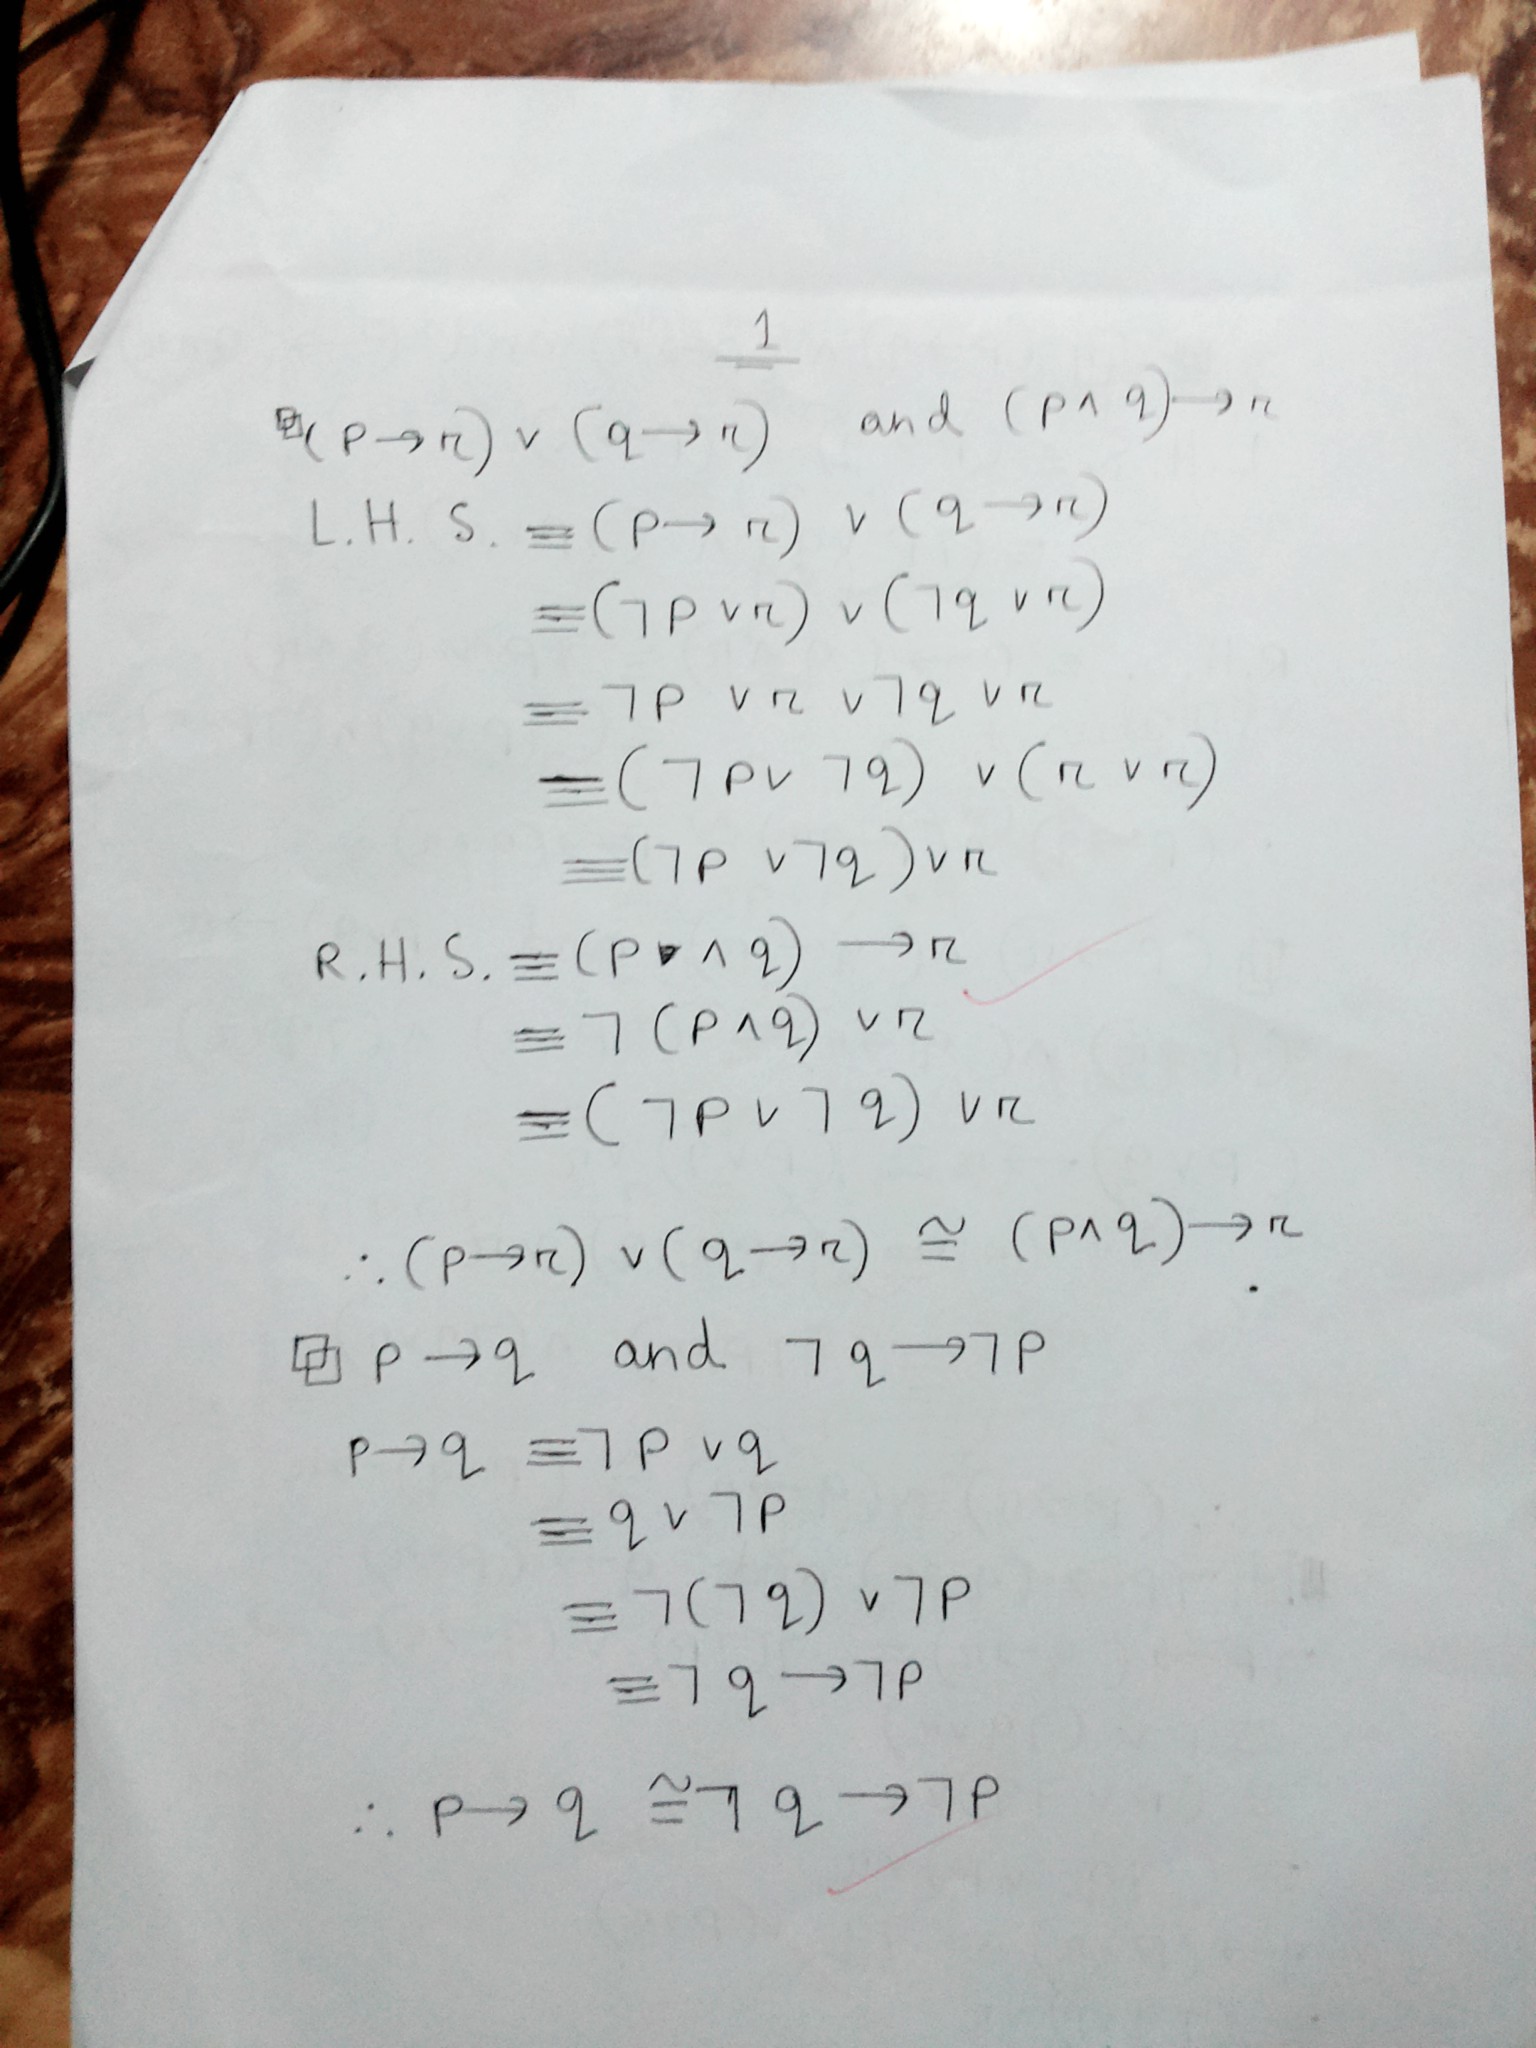 1
(p→r) ∨ (q→r) and (p∧q)→r
L.H.S. ≡ (p→r) ∨ (q→r)
≡ (¬p∨r) ∨ (¬q∨r)
≡ ¬p ∨r ∨¬q ∨r
≡ (¬p∨ ¬q) ∨ (r ∨r)
≡ (¬p ∨¬q)∨r
R.H.S. ≡ (p ∧ q) →r
≡ ¬(p∧q) ∨r
≡ (¬p∨¬q) ∨r
∴ (p→r) ∨ (q→r) ≅ (p∧q)→r
p→q and ¬q→¬p
p→q ≡ ¬p∨q
≡ q∨¬p
≡ ¬(¬q) ∨¬p
≡ ¬q→¬p
∴ p→q ≅ ¬q→¬p